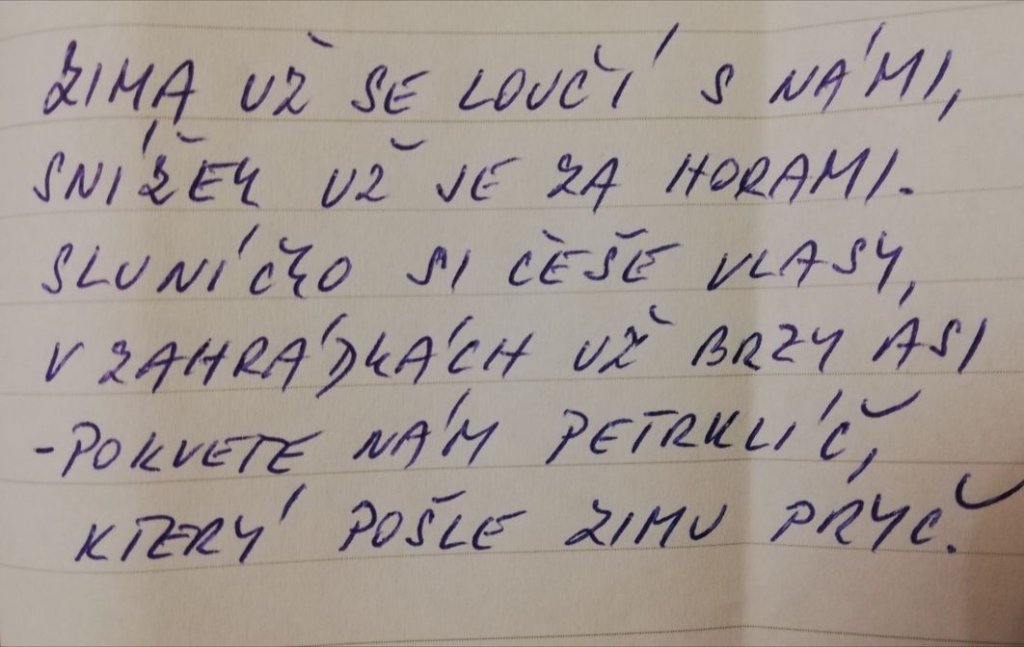 ZIMA UŽ SE LOUČÍ S NÁMI,
SNÍŽEK UŽ JE ZA HORAMI.
SLUNÍČKO SI ČEŠE VLASY,
V ZAHRÁDKÁCH UŽ BRZY ASI
-POKVETE NÁM PETRKLÍČ,
KTERÝ POŠLE ZIMU PRYČ.